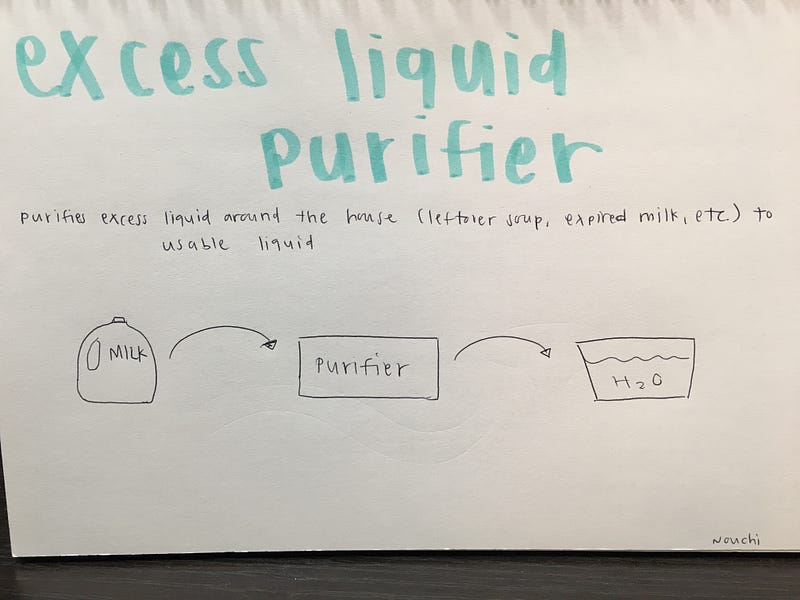 excess liquid
purifier
purifies excess liquid around the house (leftover soup, expired milk, etc.) to
usable liquid
MILK
purifier
H2O
Nouchi